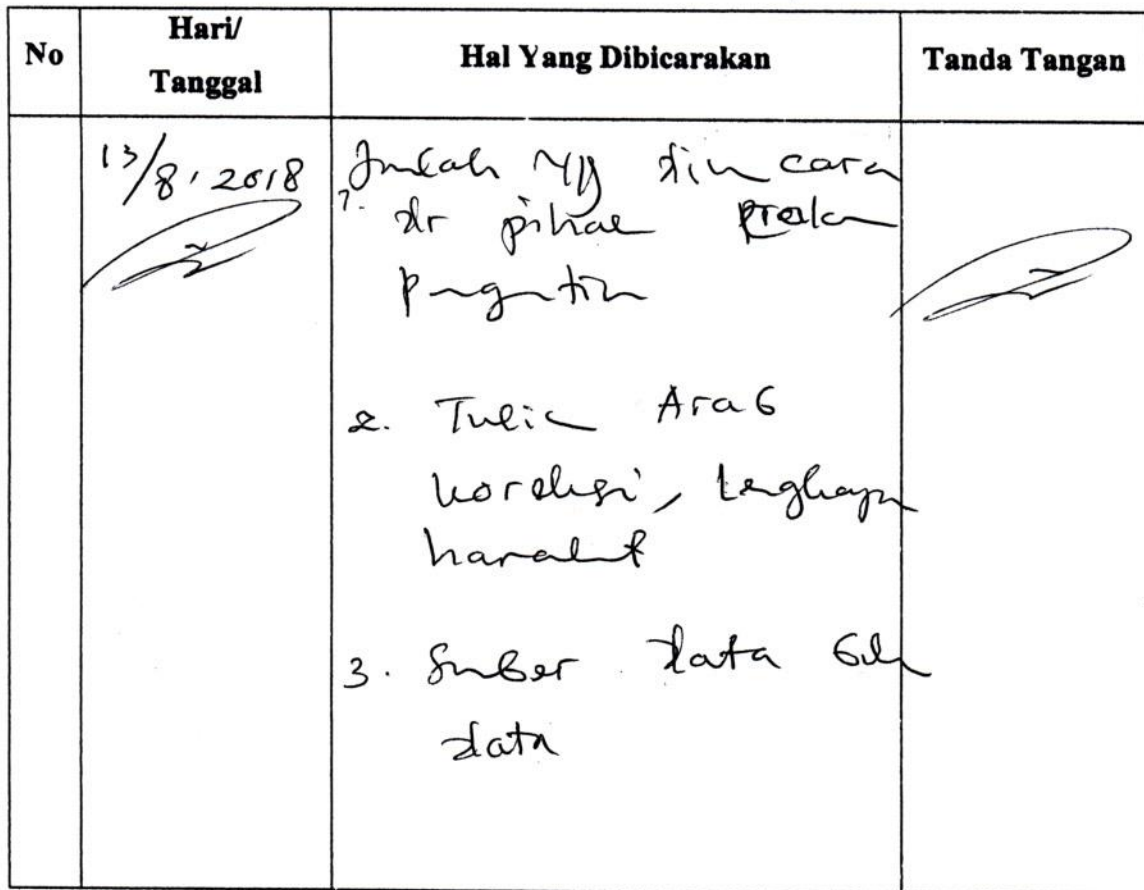 No
Hari/
Tanggal
Hal Yang Dibicarakan
Tanda Tangan
13/8, 2018
Jumlah yg cara
1. dr pihak
2. Tulis Arab
koreksi, lengkapi
harakat
3. Sumber data
data